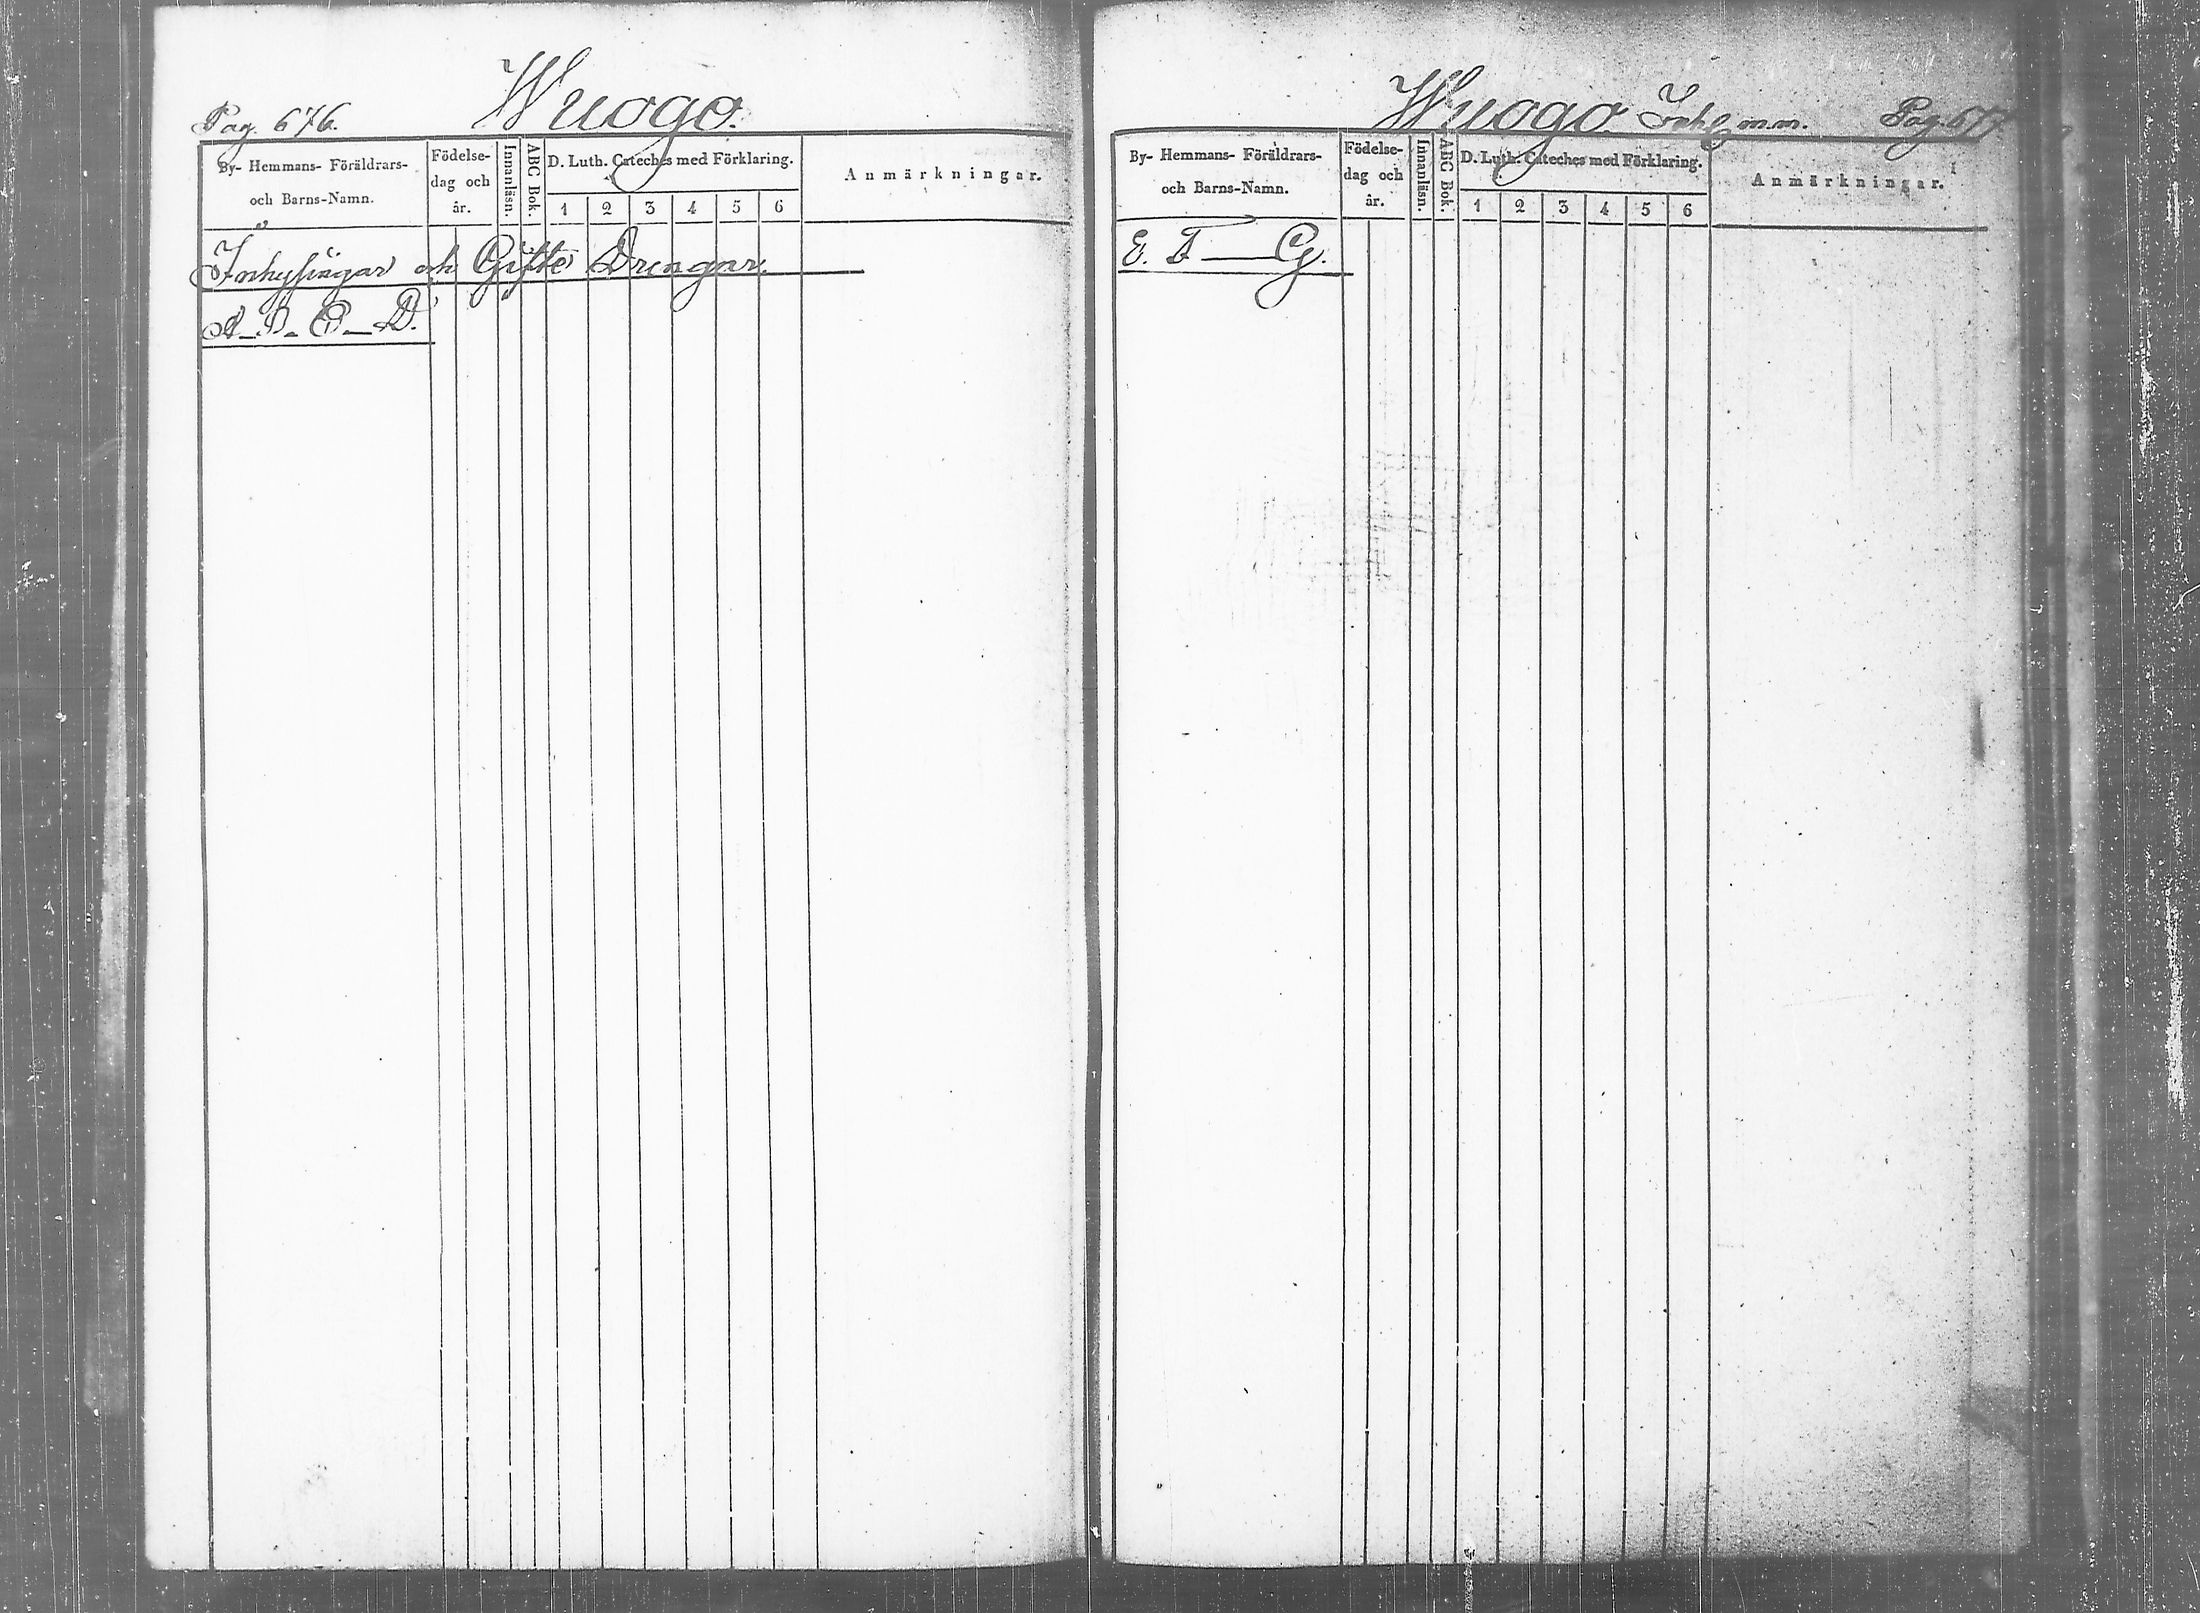 Pag. 676.
Wuogo.
By- Hemmans- Föräldrars- och Barns-Namn.
Födelse- dag och år.
Innanläsn.
ABC Bok.
D. Luth. Cateches med Förklaring.
1 2 3 4 5 6
Anmärkningar.
Inhysingar och Gifte Drengar.
A_B_C_D.
Wuogo Pag. 677
By- Hemmans- Föräldrars- och Barns-Namn.
Födelse- dag och år.
Innanläsn.
ABC Bok.
D. Luth. Cateches med Förklaring.
1 2 3 4 5 6
Anmärkningar.
E. F — G.